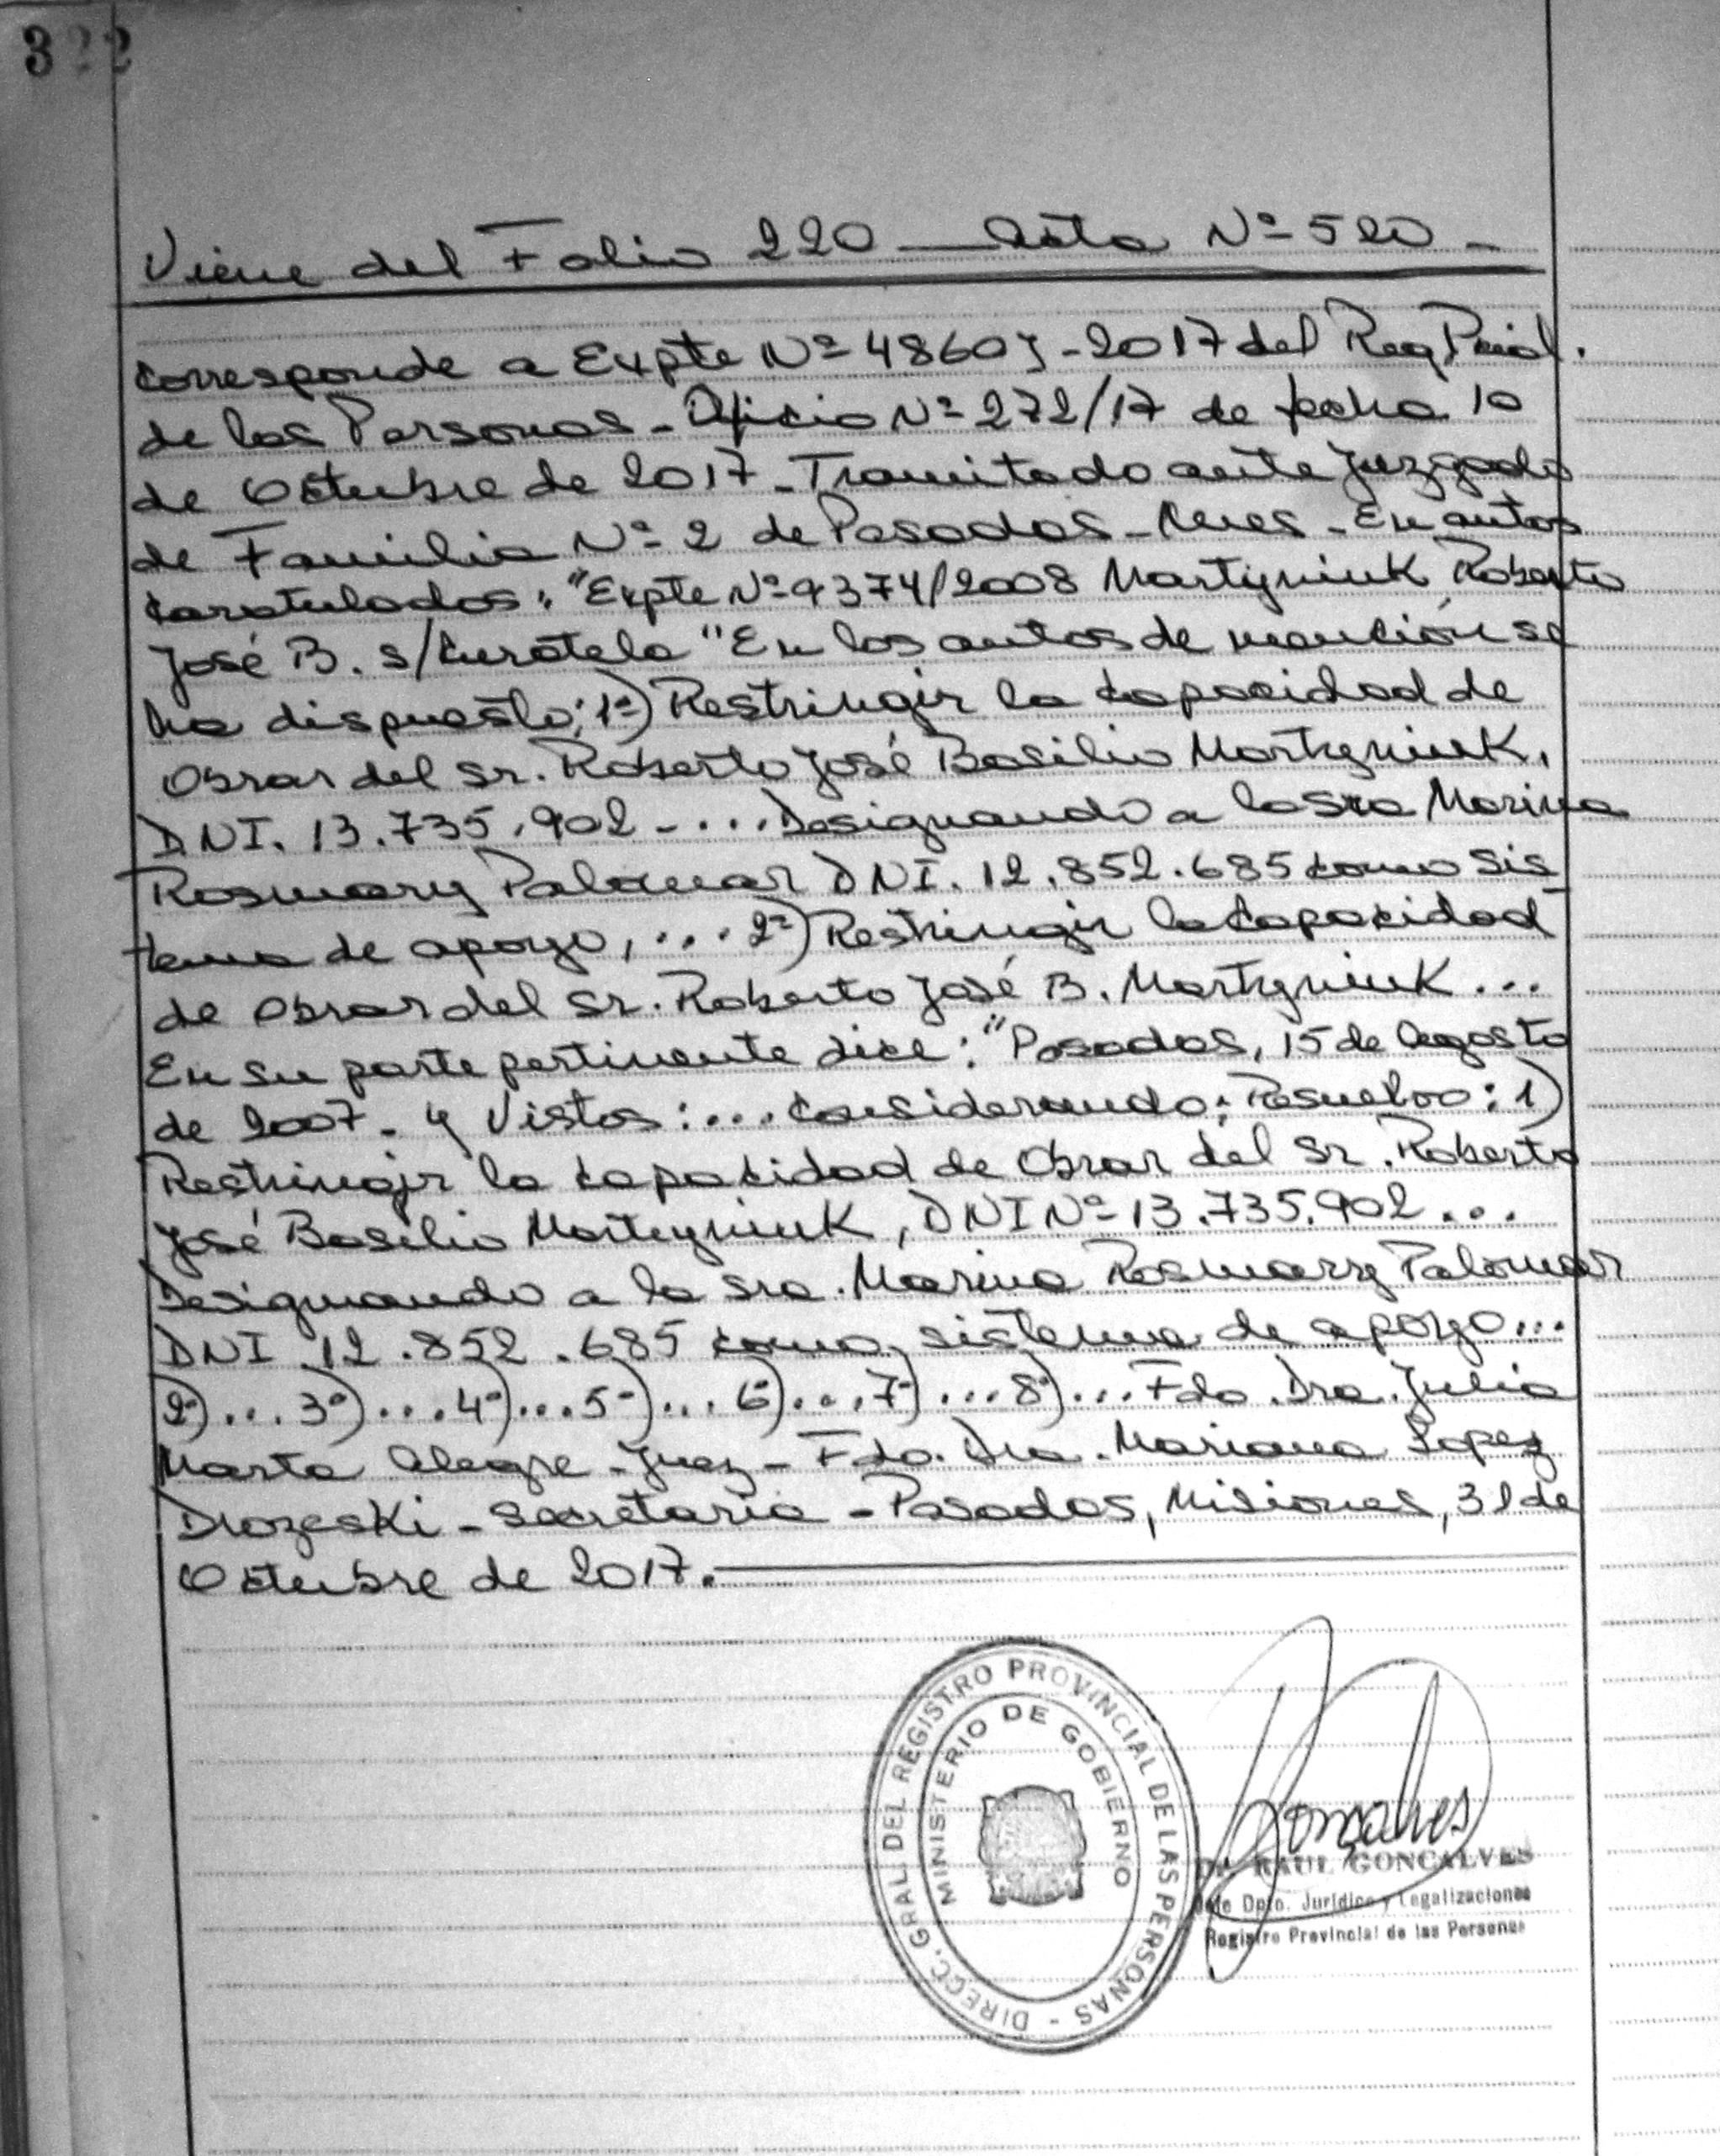 322
Viene del Folio 220 — Acta Nº 520 -
corresponde a Expte Nº 4860 J - 2017 del Reg Pcial.
de las Personas - Oficio Nº 272/17 de fecha 10
de Octubre de 2017 - Tramitado ante Juzgado
de Familia Nº 2 de Posadas - Mnes - En autos
caratulados: "Expte Nº 9374/2008 Martyniuk Roberto
José B. s/Curatela" En los autos de mención se
ha dispuesto: 1º) Restringir la capacidad de
Obrar del Sr. Roberto José Basilio Martyniuk,
DNI. 13.735.902 - ... Designando a la Sra Marina
Rosmary Palomar DNI. 12.852.685 como Sis
tema de apoyo, ... 2º) Restringir la Capacidad
de Obrar del Sr. Roberto José B. Martyniuk ...
En su parte pertinente dice: "Posadas, 15 de Agosto
de 2007 - y Vistos: ... Considerando: Resuelvo: 1)
Restringir la capacidad de Obrar del Sr. Roberto
José Basilio Martyniuk, DNI Nº 13.735.902 ...
Designando a la Sra. Marina Rosmary Palomar
DNI 12.852.685 como sistema de apoyo ...
2º) ... 3º) ... 4º) ... 5º) ... 6º) ... 7º) ... 8º) ... Fdo. Dra. Julia
Marta Alegre - Juez - Fdo. Dra. Mariana Lopez
- Secretaria - Posadas, Misiones, 31 de
Octubre de 2017.
DIRECC. GRAL. DEL REGISTRO PROVINCIAL DE LAS PERSONAS -
MINISTERIO DE GOBIERNO
Gonçalves
Dr. RAUL GONCALVES
Jefe Dpto. Jurídico y Legalizaciones
Registro Provincial de las Personas